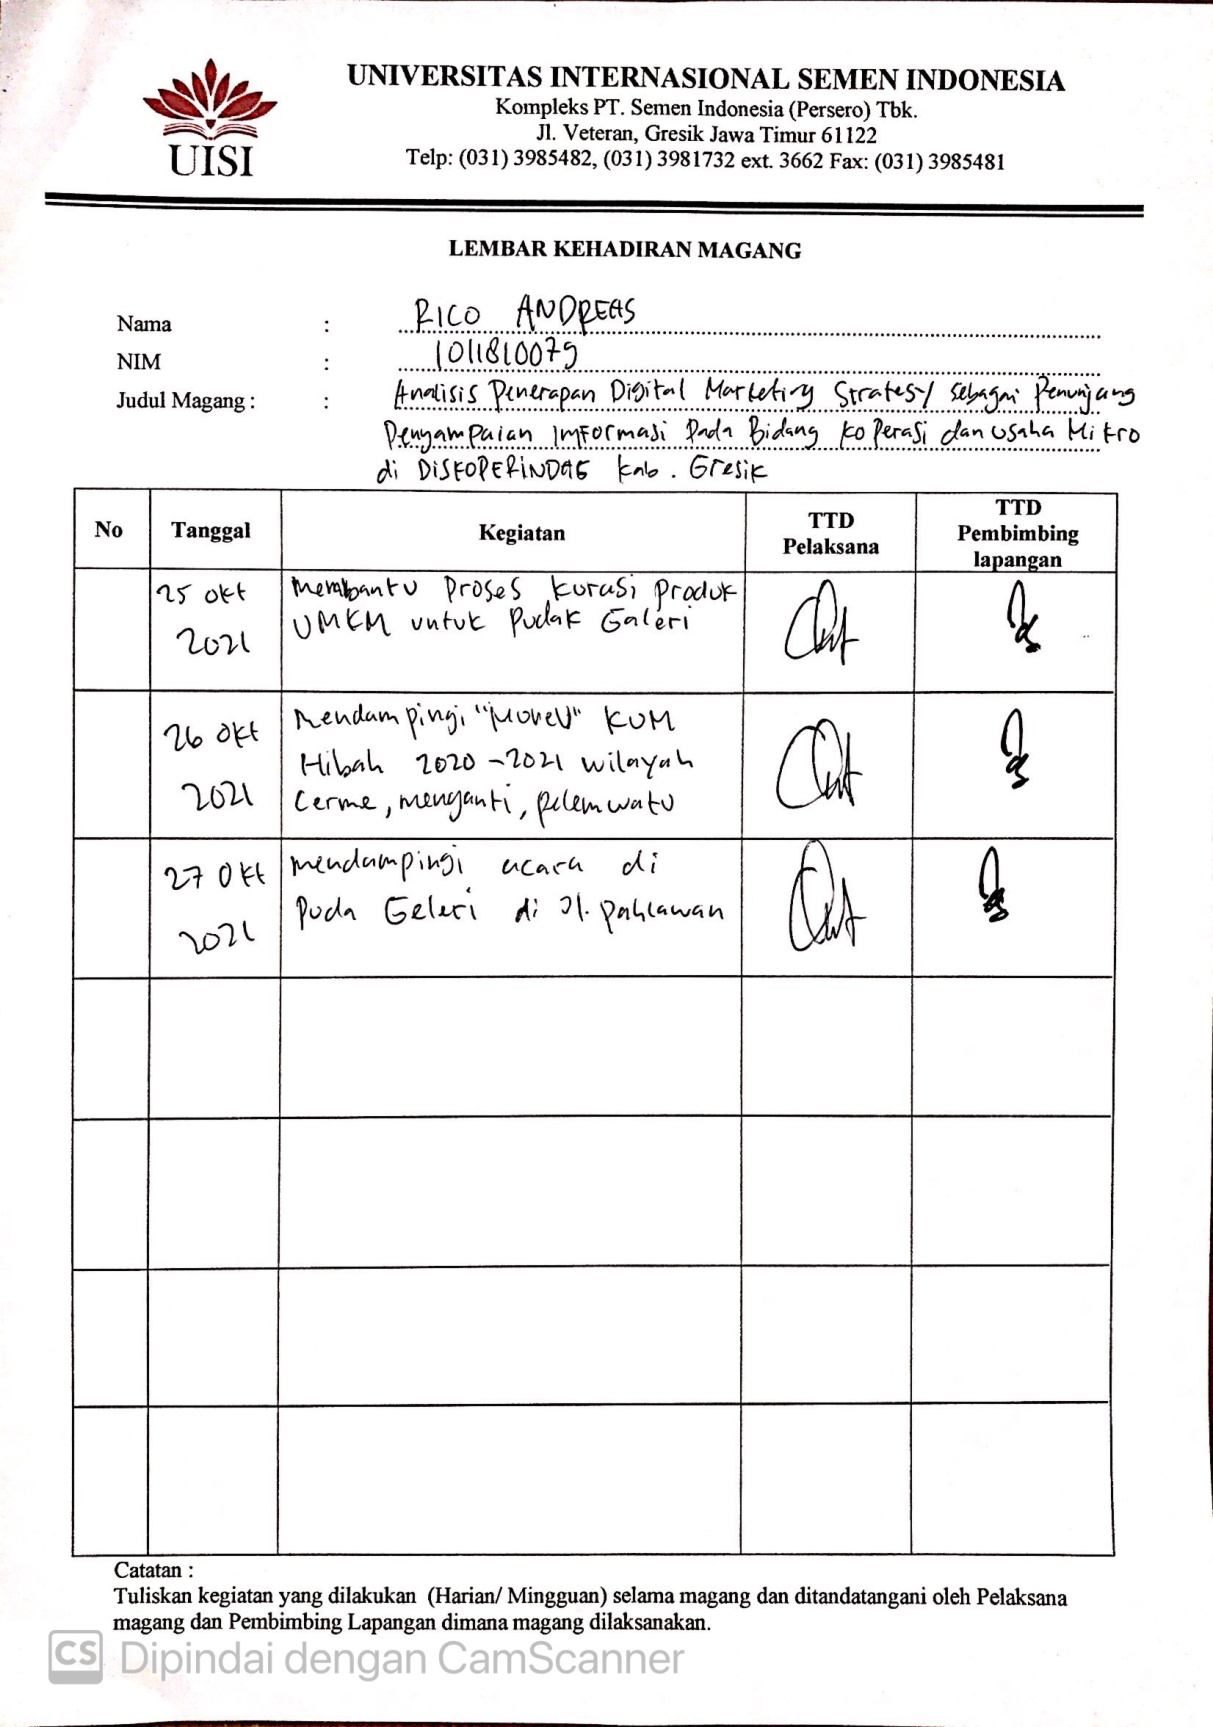 UISI
UNIVERSITAS INTERNASIONAL SEMEN INDONESIA
Kompleks PT. Semen Indonesia (Persero) Tbk.
Jl. Veteran, Gresik Jawa Timur 61122
Telp: (031) 3985482, (031) 3981732 ext. 3662 Fax: (031) 3985481
LEMBAR KEHADIRAN MAGANG
Nama : RICO ANDREAS
NIM : 1011810079
Judul Magang : : Analisis Penerapan Digital Marketing Strategy sebagai Penunjang
Penyampaian Imformasi Pada Bidang Koperasi dan usaha Mikro
di DISKOPERINDAG Kab. Gresik
No Tanggal Kegiatan TTD Pelaksana TTD Pembimbing lapangan
25 okt 2021
Membantu Proses kurasi Produk
UMKM untuk Pudak Galeri
26 Okt 2021
Mendampingi KUM
Hibah 2020-2021 wilayah
Cerme, menganti, pelemwatu
27 Okt 2021
mendampingi acara di
Puda Geleri di Jl. pahlawan
Catatan :
Tuliskan kegiatan yang dilakukan (Harian/ Mingguan) selama magang dan ditandatangani oleh Pelaksana
magang dan Pembimbing Lapangan dimana magang dilaksanakan.
CS Dipindai dengan CamScanner